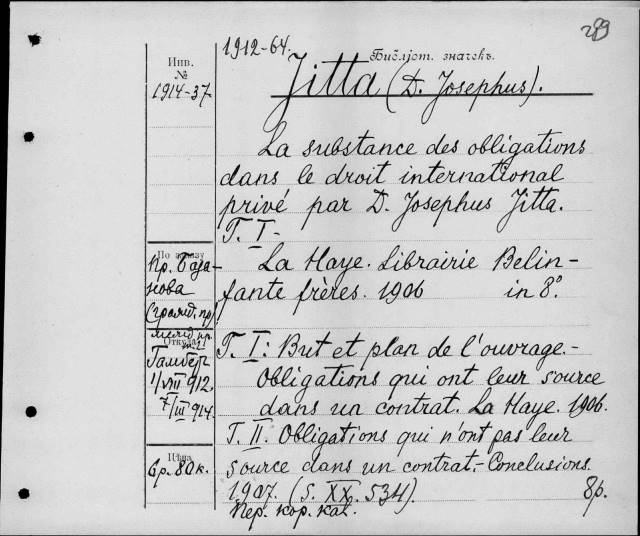 299
1912-64.
Библіот. значекъ.
Инв.
№
1914-37
Jitta (D. Josephus).
La substance des obligations
dans le droit international
privé par D. Josephus Jitta.
T. I-
По заказу
Пр. База-
нова
La Haye. Librairie Belin-
fante frères. 1906 in 8°.
Откуда
Гамбер
1/VIII 912.
7/III 914.
T. I: But et plan de l'ouvrage.-
Obligations qui ont leur source
dans un contrat. La Haye. 1906.
T. II. Obligations qui n'ont pas leur
source dans un contrat.- Conclusions.
1907. (S. XX. 534). 8р.
Пер. кор. кал.
Цѣна
6р. 80к.